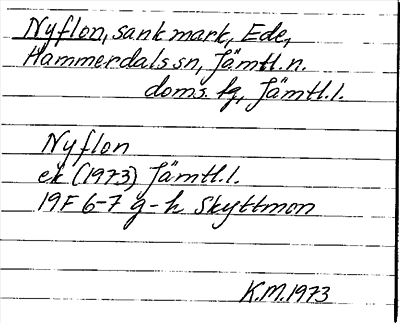 Nyflon, sank mark, Ede,
Hammerdals sn, Jämtl. n.
doms. hg, Jämtl. l.
Nyflon
ek (1973) Jämtl. l.
19F 6-7 g-h Skyttmon
K.M. 1973